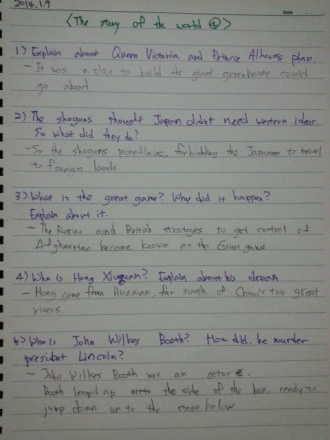 2014.1.9
Date
<The story of the world ④>
1) Explain about Queen Victoria and Prince Albert's plan.
- It was a plan to build the great greenhouse could
go ahead
2) The shoguns thought Japan didn't need western ideas.
So what did they do?
- So the shoguns passed laws, forbidding the Japanese to travel
to foreign lands
3) What is the great game? Why did it happen?
Explain about it.
- The Russian and British strategies to get control of
Afghanistan became known as the Great game
4) Who is Hong Xiuquan? Explain about his dream
- Hong came from Huaxian, far south of China's two great
rivers.
5) Who is John Wilkes Booth? How did he murder
president Lincoln?
- John Wilkes Booth was an actor.
Booth leaped up onto the side of the box, ready to
jump down on to the stage below